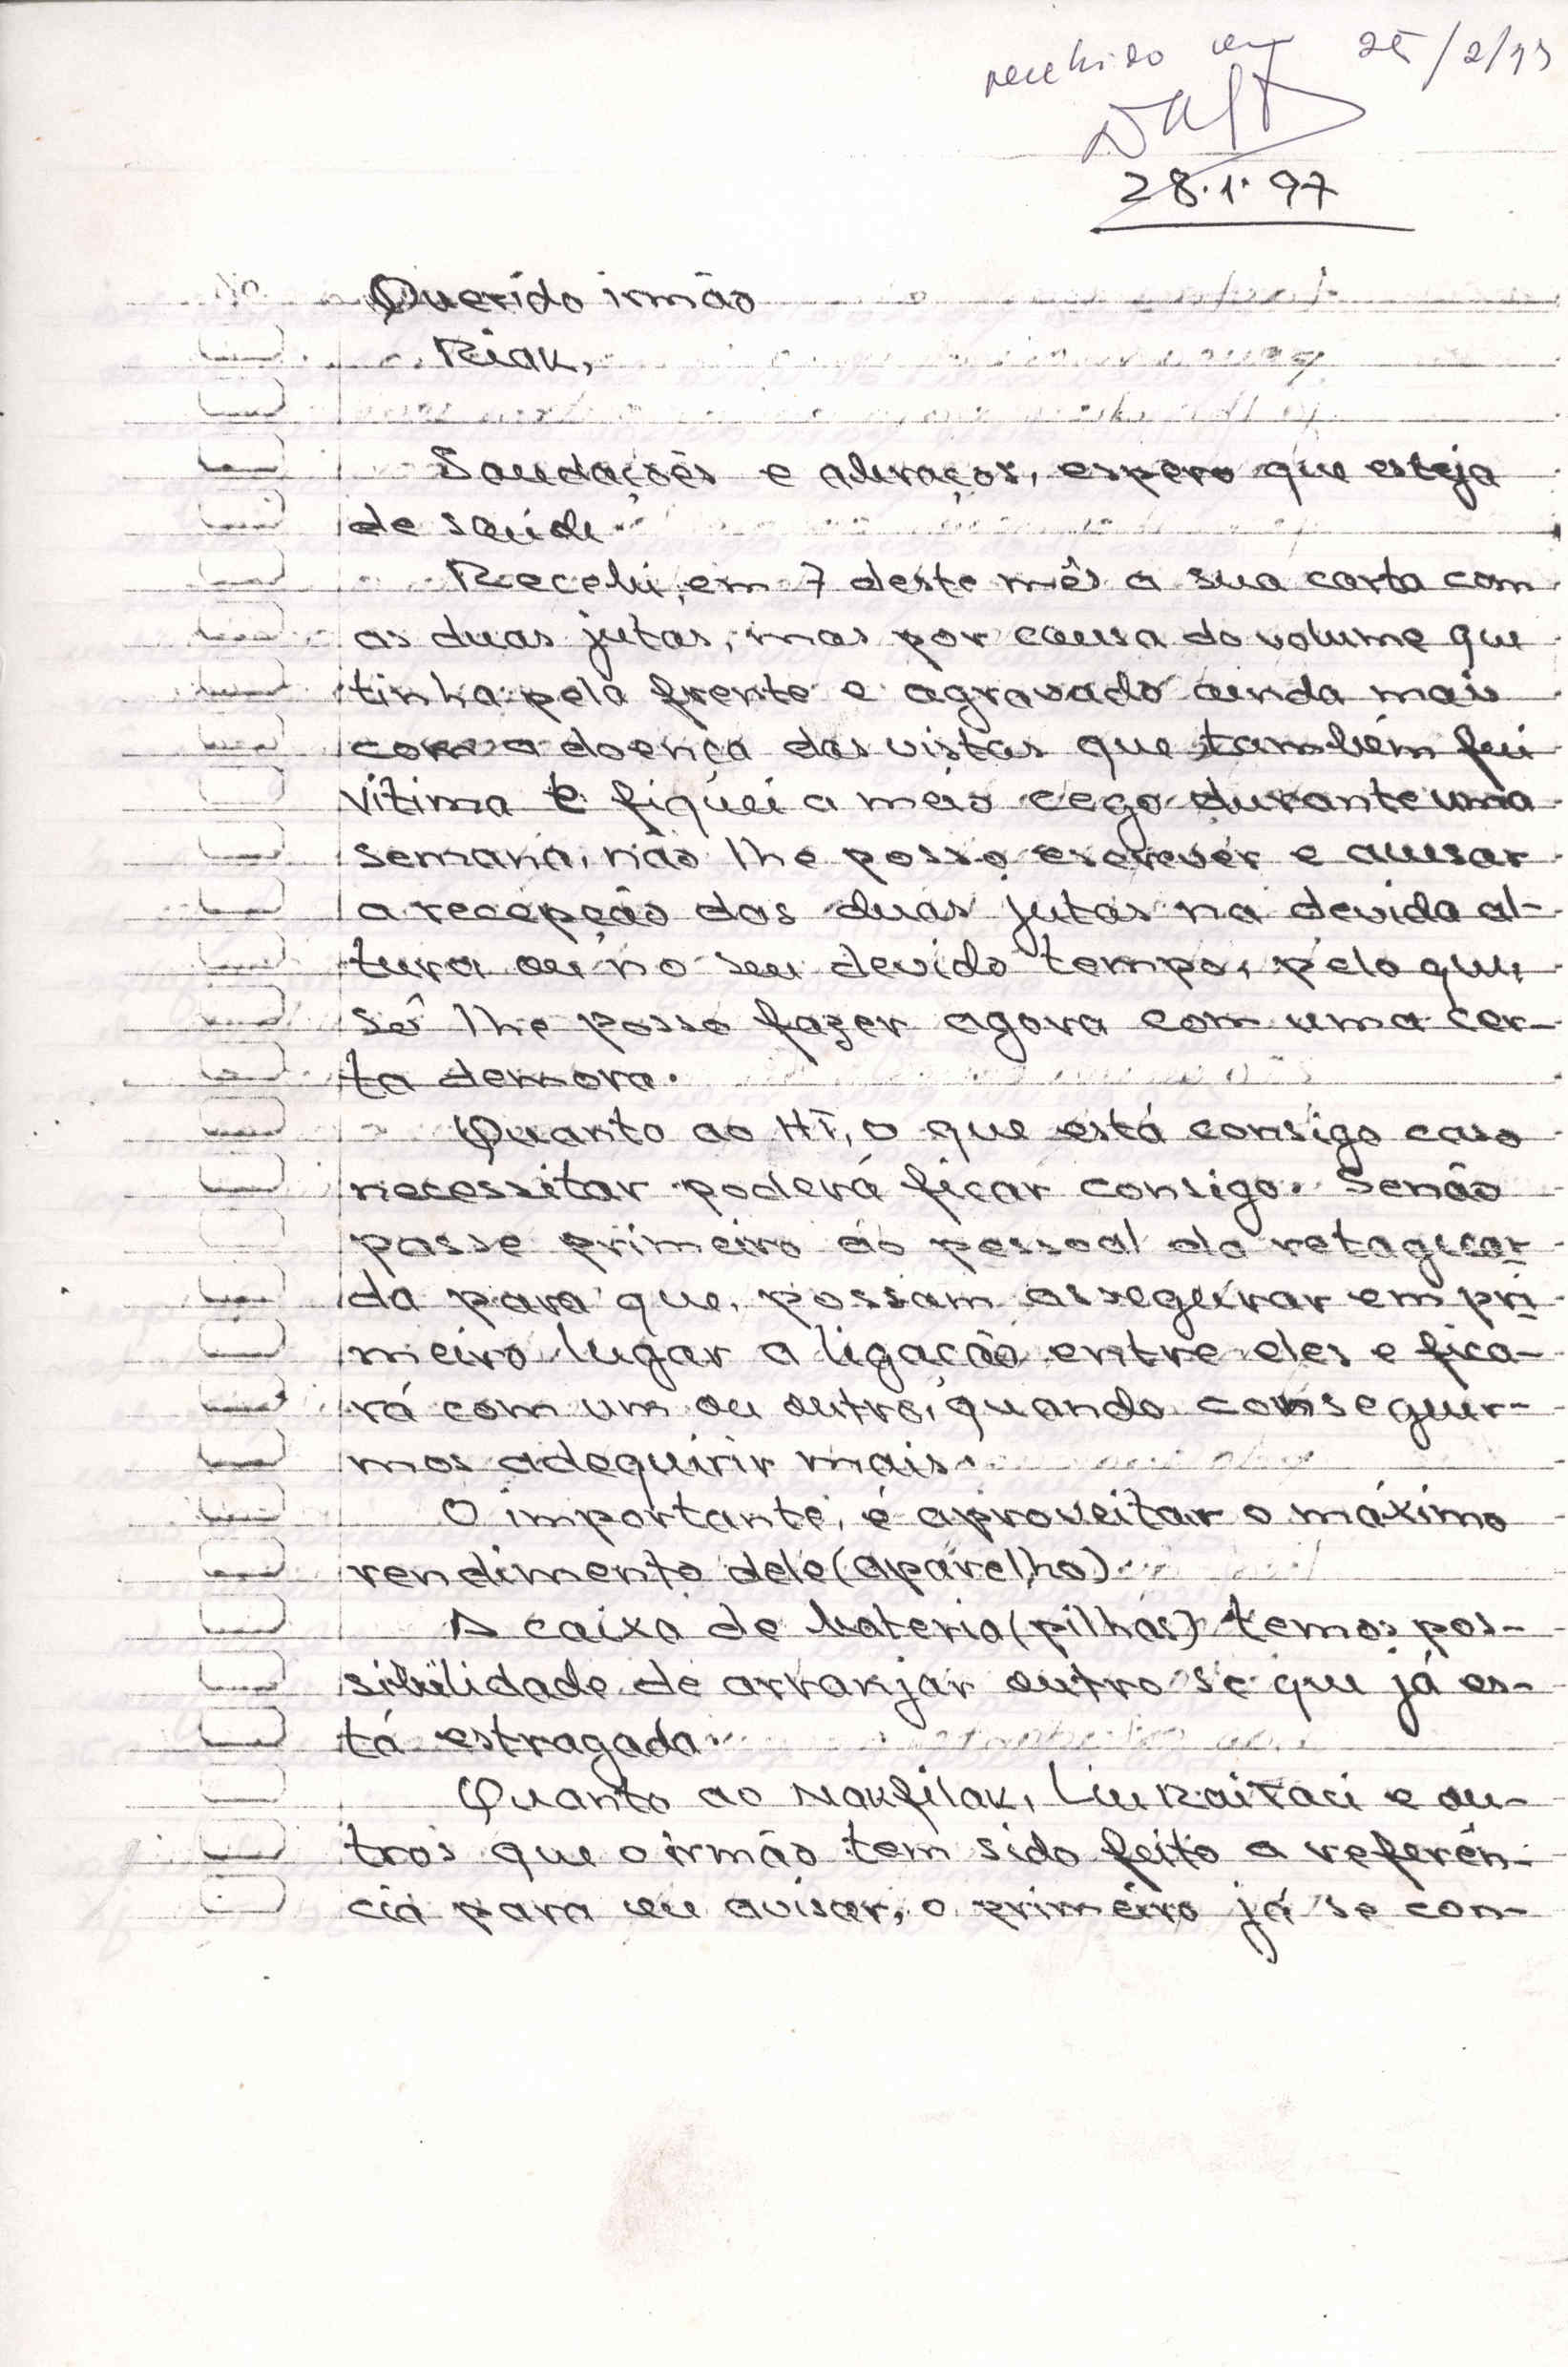 recebido em 25/2/97
28.1.97
No
Querido irmão
Riak,
Saudações e abraços, espero que esteja
de saúde.
Recebi, em 7 deste mês a sua carta com
as duas jutas, mas por causa do volume que
tinha pela frente e agravado ainda mais
com a doença das vistas que também fui
vítima e fiquei a meio cego durante uma
semana, não lhe posso escrever e avisar
a recepção das duas jutas na devida al-
tura ou no seu devido tempo, pelo que,
só lhe posso fazer agora com uma cer-
ta demora.
Quanto ao HT, o que está consigo caso
necessitar poderá ficar consigo. Senão
passe primeiro ao pessoal da retaguar-
da para que, possam assegurar em pri-
meiro lugar a ligação entre eles e fica-
rá com um ou outro, quando conseguir-
mos adequirir mais.
O importante, é aproveitar o máximo
rendimento dele (aparelho).
A caixa de bateria (pilhas) temos pos-
sibilidade de arranjar outro se que já es-
tá estragada.
Quanto ao Nakfilak, Liu Rai Taci e ou-
tros que o irmão tem sido feito a referên-
cia para eu avisar, o primeiro já se con-